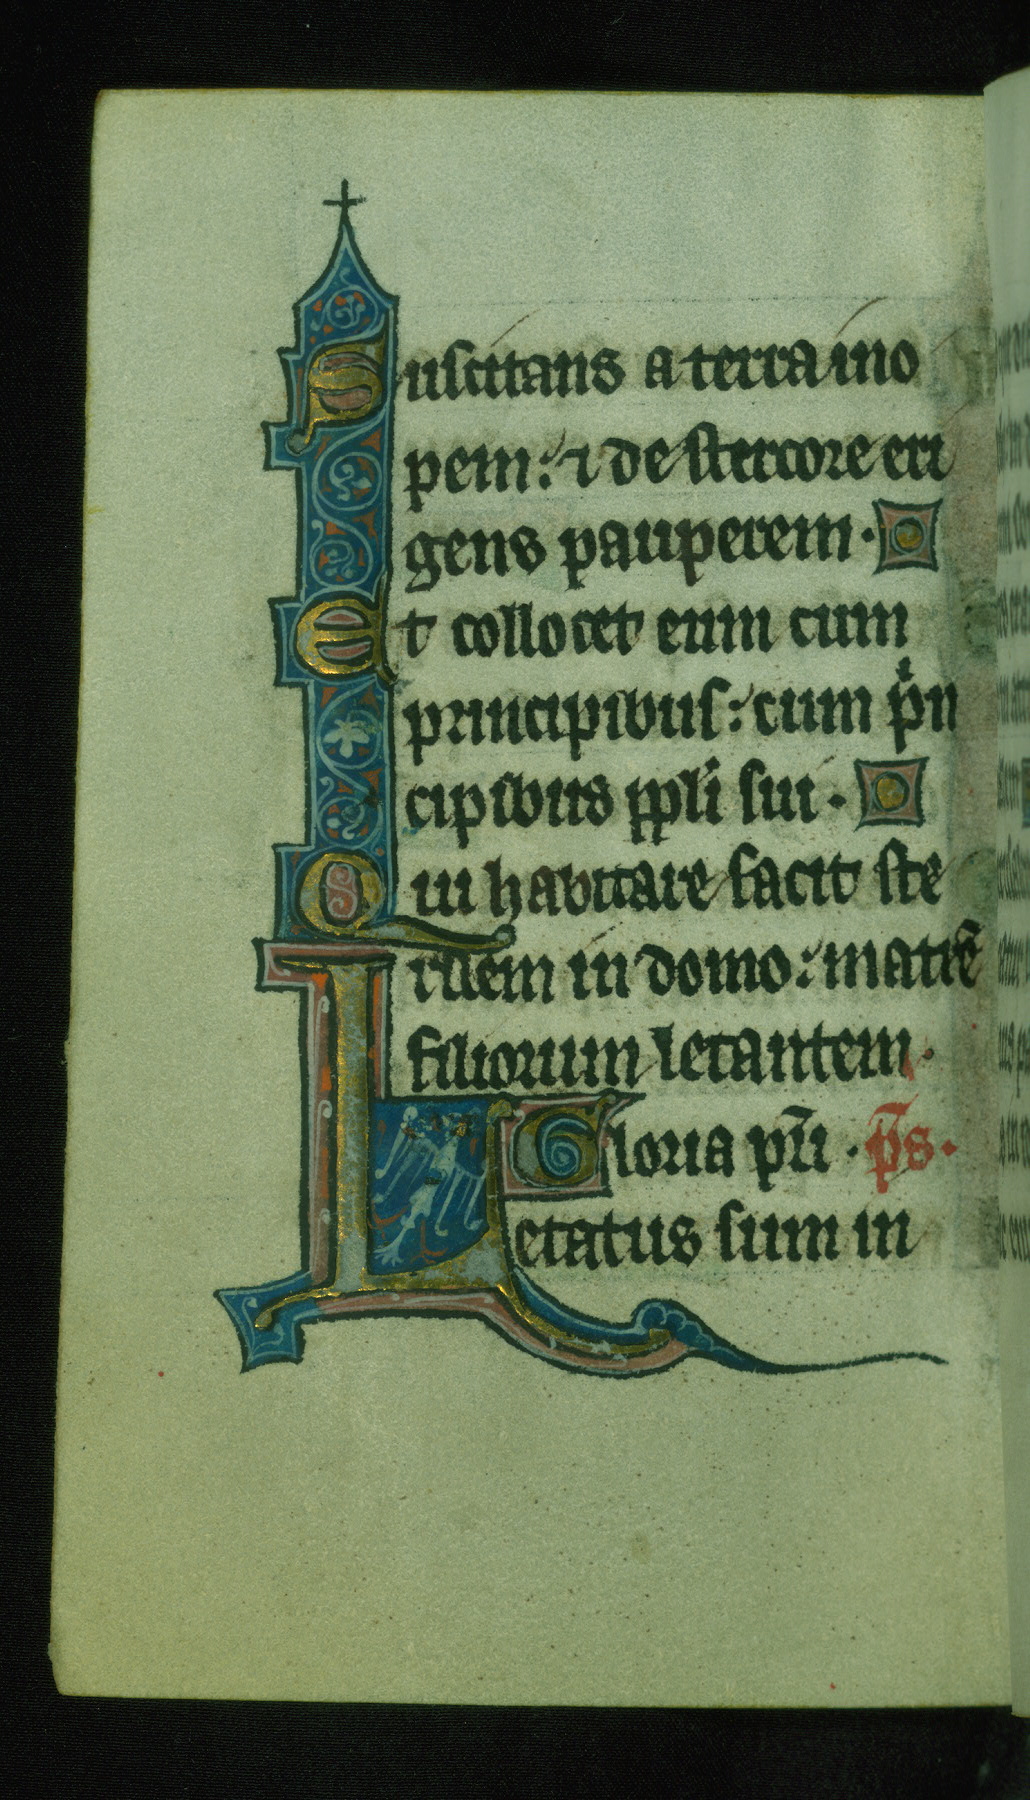 Suscitans a terra ino
pem: ⁊ de stercore eri
gens pauperem.
Et collocet eum cum
principibus: cum pͥn
cipibus ppl̄i sui.
Qui habitare facit ste
rilem in domo: matrē
filiorum letantem.
Gloria pr̄i. p̄s.
Letatus sum in